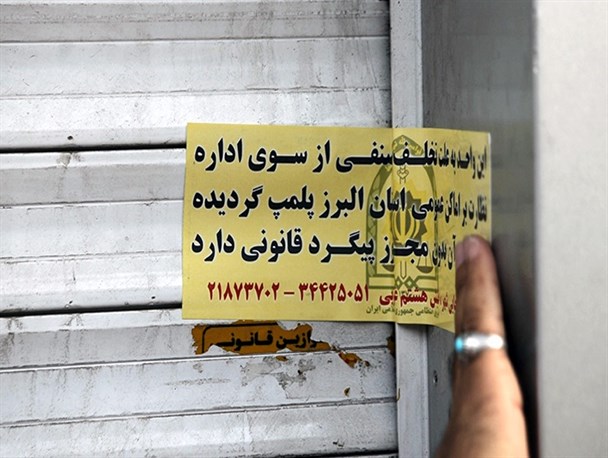 این واحد به علت تخلف صنفی از سوی اداره
نظارت بر اماکن عمومی امان البرز پلمپ گردیده
آن بدون مجوز پیگرد قانونی دارد
هستم ۳۴۴۲۵۰۵۱ - ۲۱۸۷۳۷۰۲
نظامی جمهوری اسلامی ایران
ازین قانونی